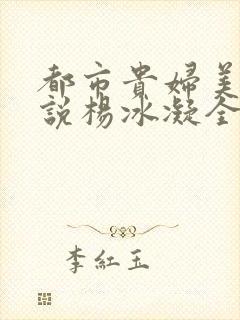 都市貴婦美
說楊冰凝全
李紅玉